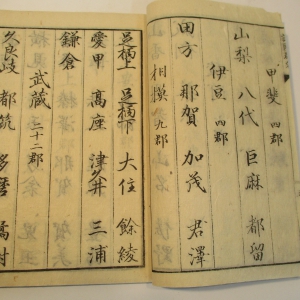 甲斐 四郡
山梨 八代 巨麻 都留
伊豆 四郡
田方 那賀 加茂 君澤
相摸 九郡
足柄上 足柄下 大住 餘綾
愛甲 髙座 津久井 三浦
鎌倉
武蔵 二十二郡
久良岐 都筑 多磨 橘樹